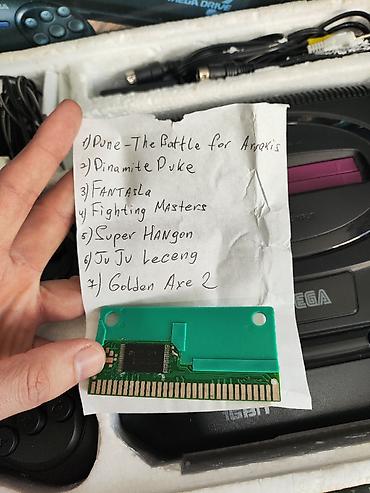 MEGA DRIVE
1) Dune-The Battle for Arrakis
2) Dinamite Duke
3) FANTASIa
4) Fighting Masters
5) Super HANgon
6) Ju Ju Leceng
7) Golden Axe 2
SEGA
16BIT